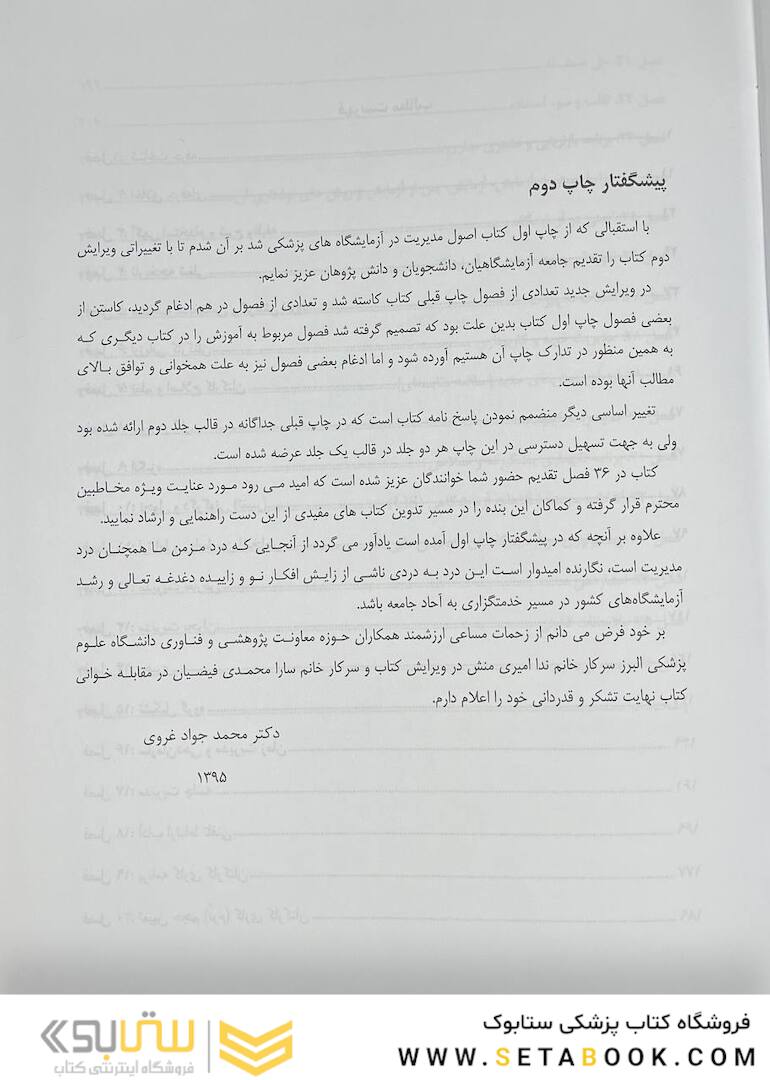 پیشگفتار چاپ دوم
با استقبالی که از چاپ اول کتاب اصول مدیریت در آزمایشگاه های پزشکی شد بر آن شدم تا با تغییراتی ویرایش
دوم کتاب را تقدیم جامعه آزمایشگاهیان، دانشجویان و دانش پژوهان عزیز نمایم.
در ویرایش جدید تعدادی از فصول چاپ قبلی کتاب کاسته شد و تعدادی از فصول در هم ادغام گردید، کاستن از
بعضی فصول چاپ اول کتاب بدین علت بود که تصمیم گرفته شد فصول مربوط به آموزش را در کتاب دیگری که
به همین منظور در تدارک چاپ آن هستیم آورده شود و اما ادغام بعضی فصول نیز به علت همخوانی و توافق بالای
مطالب آنها بوده است.
تغییر اساسی دیگر منضمم نمودن پاسخ نامه کتاب است که در چاپ قبلی جداگانه در قالب جلد دوم ارائه شده بود
ولی به جهت تسهیل دسترسی در این چاپ هر دو جلد در قالب یک جلد عرضه شده است.
کتاب در ۳۶ فصل تقدیم حضور شما خوانندگان عزیز شده است که امید می رود مورد عنایت ویژه مخاطبین
محترم قرار گرفته و کماکان این بنده را در مسیر تدوین کتاب های مفیدی از این دست راهنمایی و ارشاد نمایید.
علاوه بر آنچه که در پیشگفتار چاپ اول آمده است یادآور می گردد از آنجایی که درد مزمن ما همچنان درد
مدیریت است، نگارنده امیدوار است این درد به دردی ناشی از زایش افکار نو و زاییده دغدغه تعالی و رشد
آزمایشگاه‌های کشور در مسیر خدمتگزاری به آحاد جامعه باشد.
بر خود فرض می دانم از زحمات مساعی ارزشمند همکاران حوزه معاونت پژوهشی و فناوری دانشگاه علوم
پزشکی البرز سرکار خانم ندا امیری منش در ویرایش کتاب و سرکار خانم سارا محمدی فیضیان در مقابله خوانی
کتاب نهایت تشکر و قدردانی خود را اعلام دارم.
دکتر محمد جواد غروی
۱۳۹۵
فروشگاه کتاب پزشکی ستابوک
WWW.SETABOOK.COM
ستابوک
فروشگاه اینترنتی کتاب